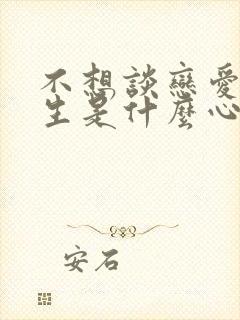 不想談戀愛
生是什麼心
安石